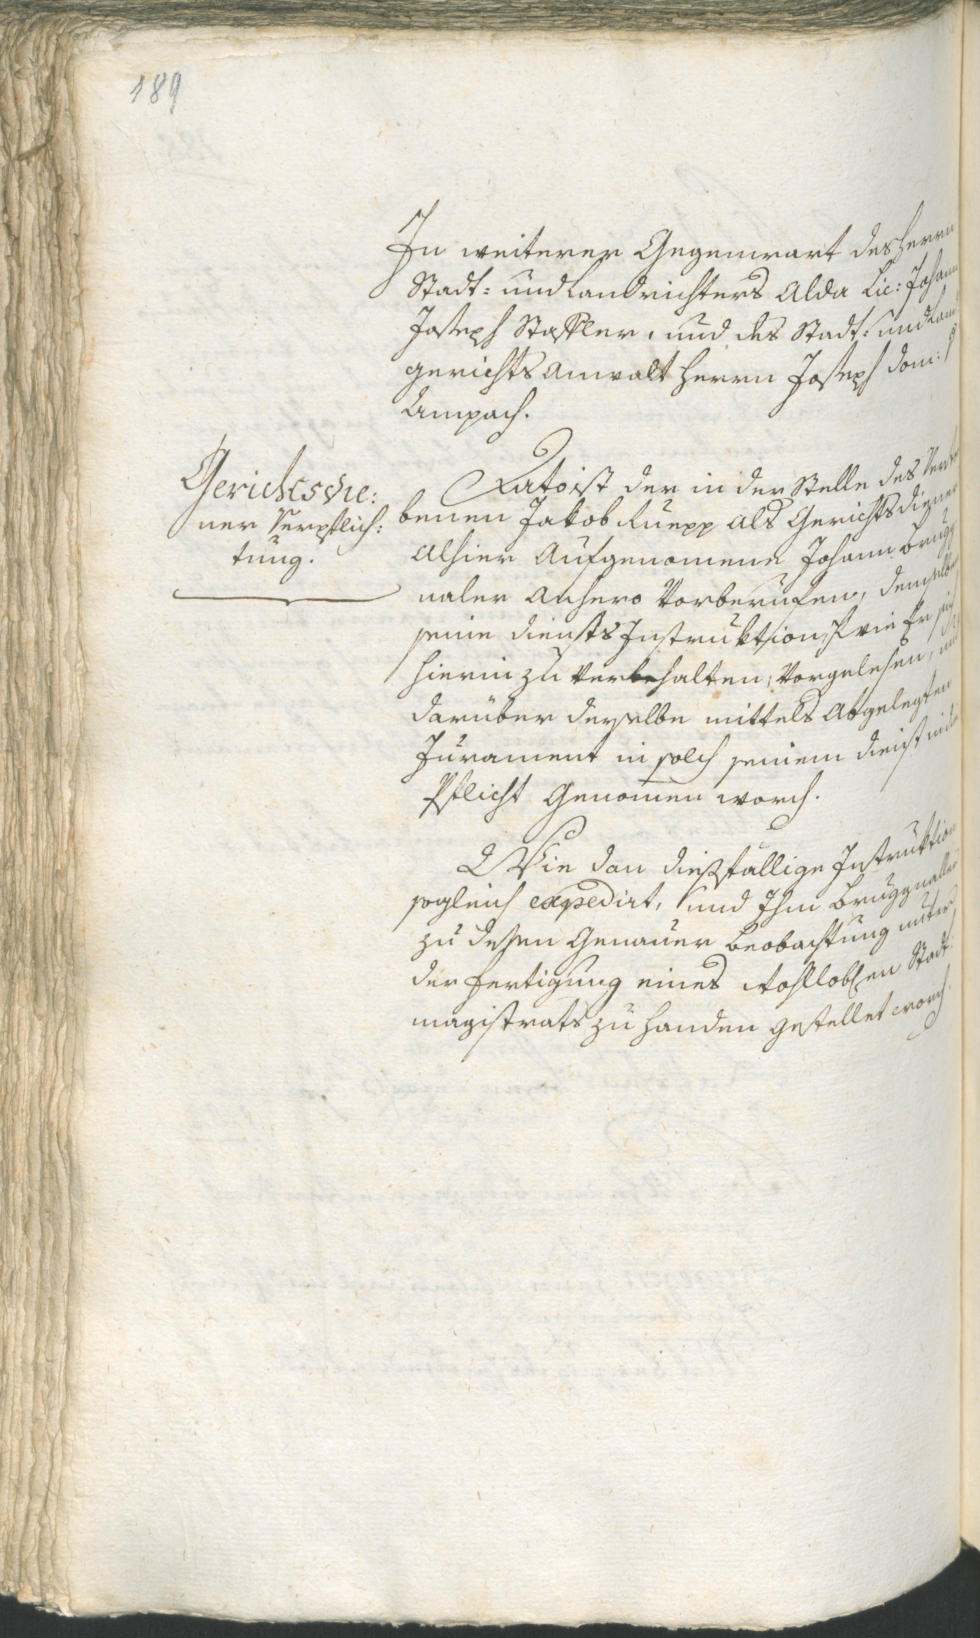 189
In weiterer Gegenwart des Herrn
Stadt- und Landrichters Alda Lic: Johann
Joseph Stafler, und des Stadt- und Land
gerichts Anwalt Herrn Joseph Dom:
Ampach.
Gerichtsdie:
ner Verpflich:
tung.
Dato ist der in der Stelle des Verstor
benen Jakob Ruepp als Gerichtsdiener
alhier Aufgenomene Johann Brugg
naler anhero Vorberufen, demselben
seine Diensts Instruktion, wie Er sich
hierin zu Verhalten, Vorgelesen, und
darüber derselbe mittels Abgelegten
Jurament in solch seinem Dienst in die
Pflicht Genomen word.
Wie dan diesfällige Instruktion
sogleich expedirt, und Ihm Bruggnaller
zu deßen Genauer Beobachtung unter
der Fertigung eines Wohllobl.en Stadt
magistrats zu Handen gestellet word.